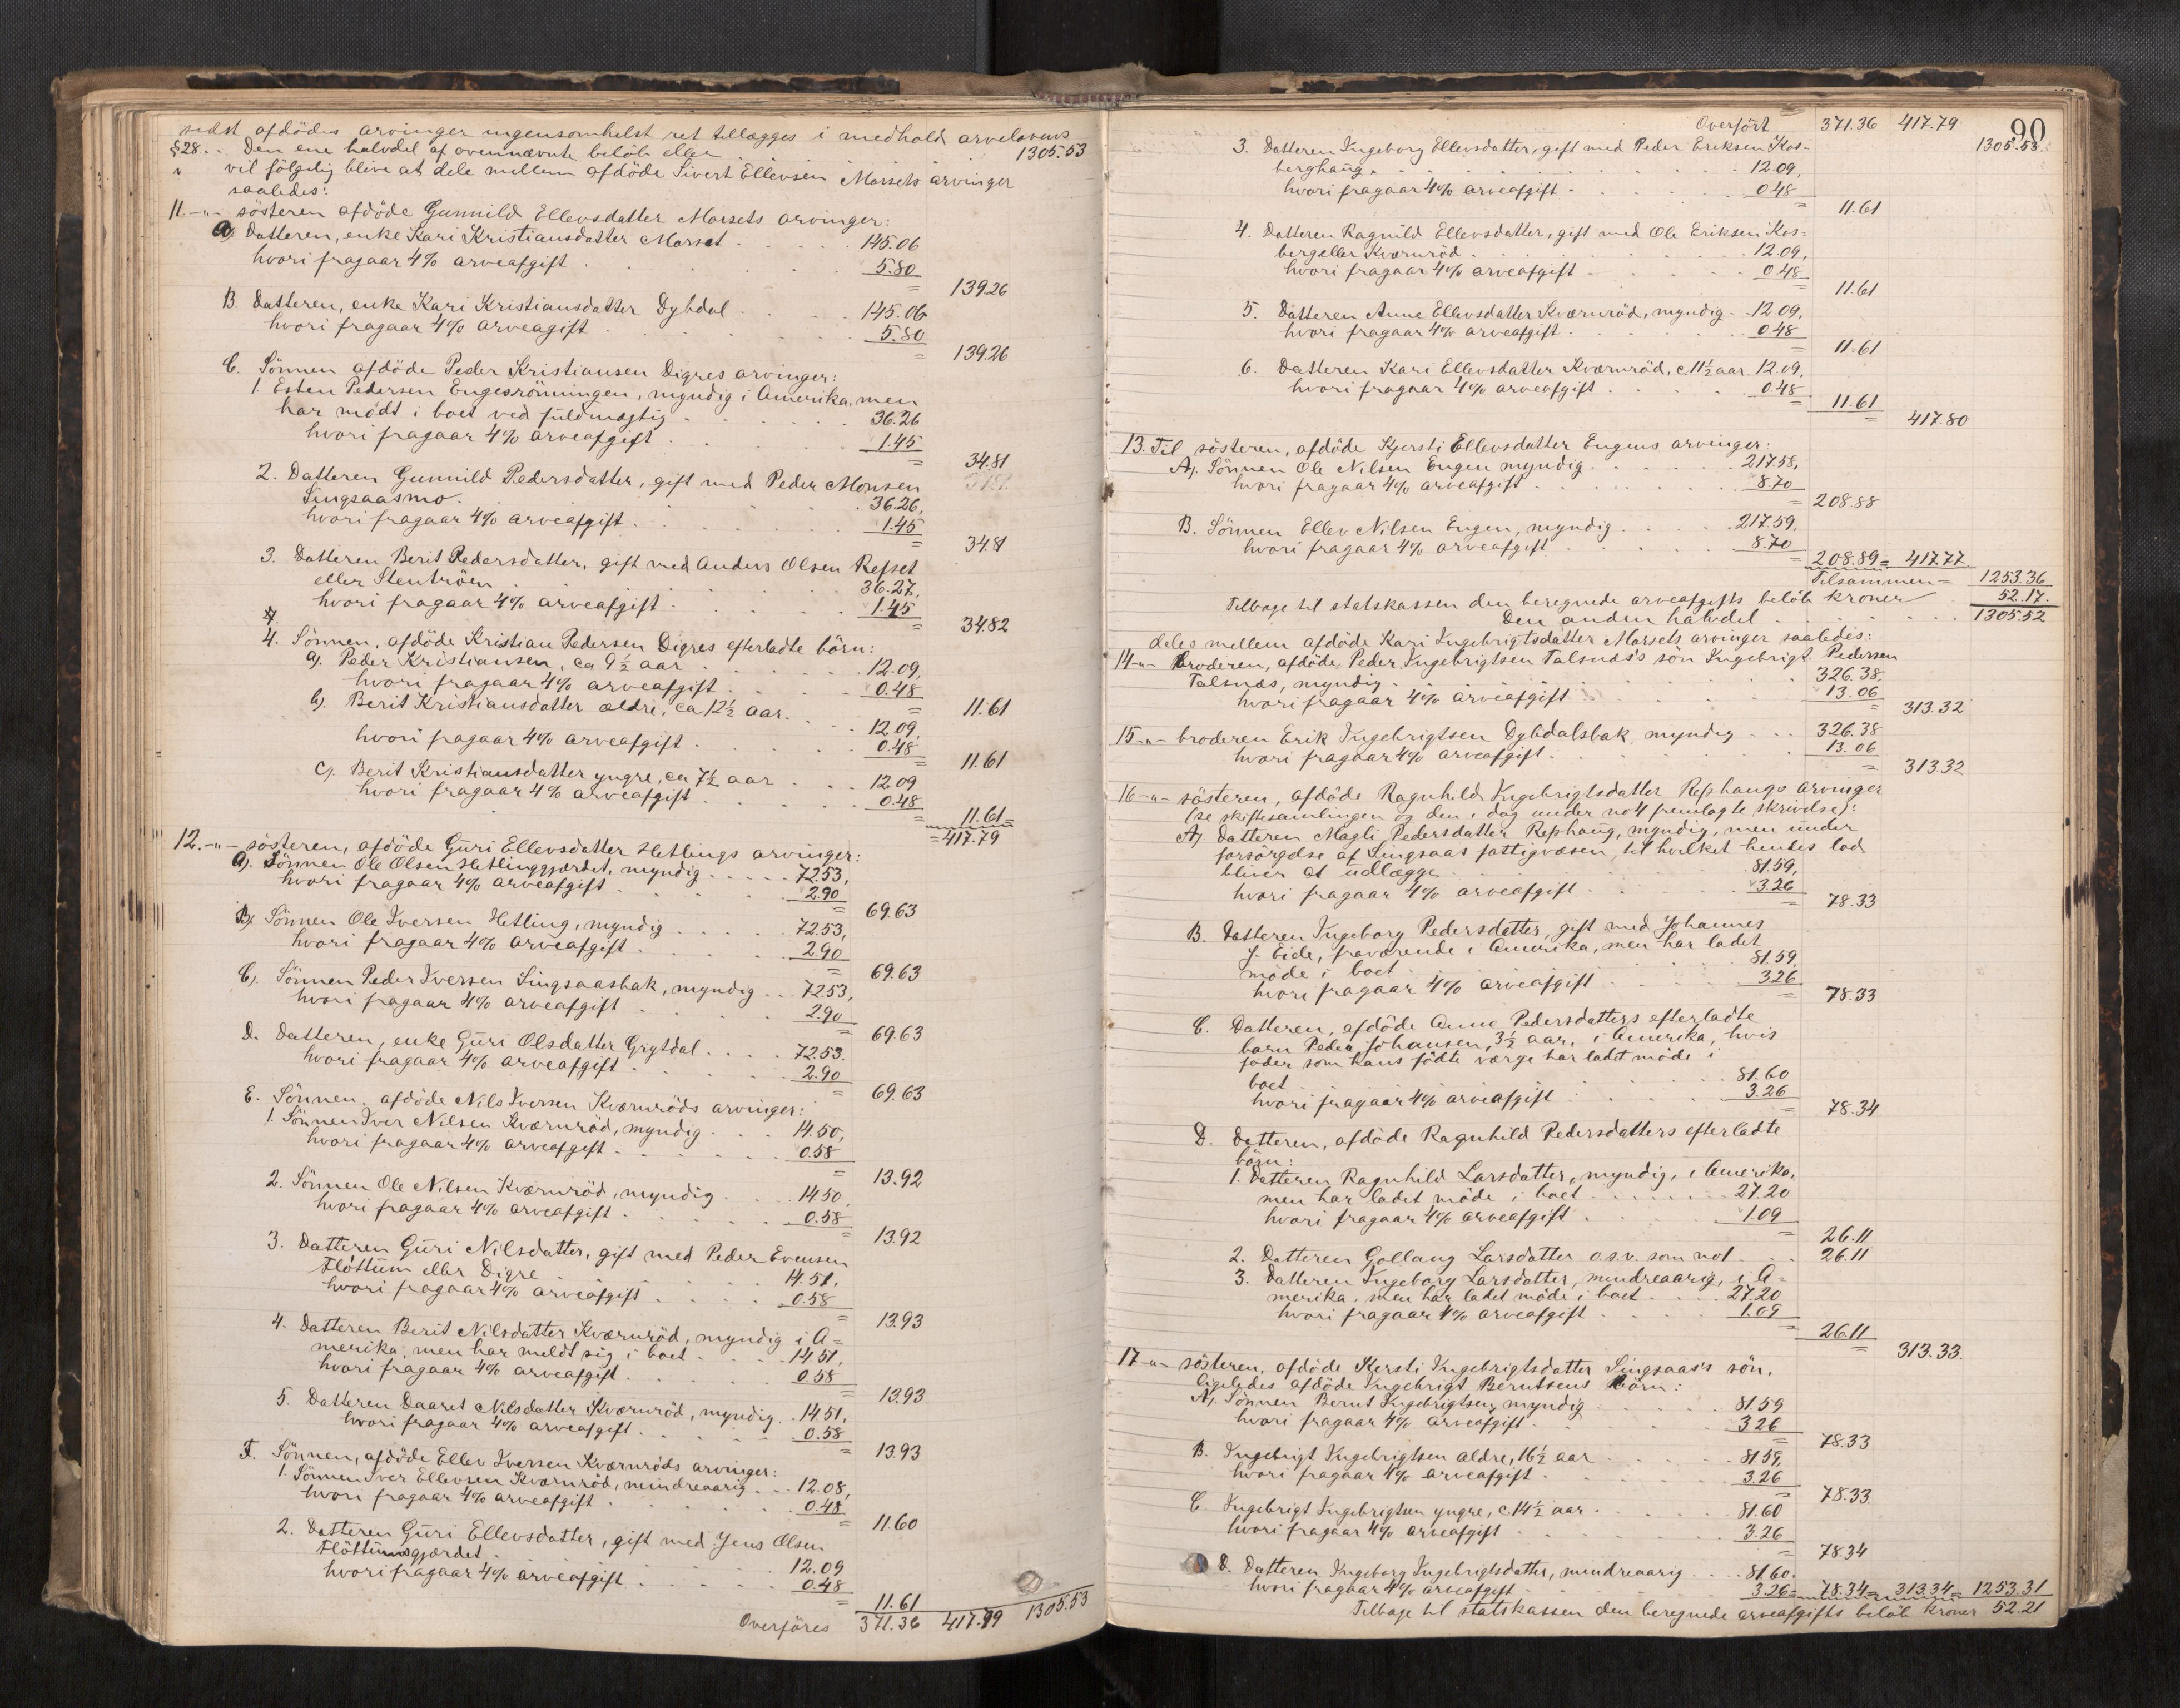 sidst afdödes arvinger ingensomhelst ret tillægges i medhold arvelovens
§28. . Den ene halvdel af ovennævnte belöb eller . . . . . 1305.53
vil fölgelig blive at dele mellem afdöde Sivert Ellevsen Morsets arvinger
saaledes:
11.-"- sösteren afdöde Gunnild Ellevsdatter Morsets arvinger:
A). Datteren, enke Kari Kristiansdatter Morset . . . . 145.06
hvori fragaar 4% arveafgift . . . . 5.80
= 139.26
B. Datteren, enke Kari Kristiansdatter Dybdal . . . . 145.06
hvori fragaar 4% arveagift . . . . 5.80
= 139.26
C. Sönnen afdöde Peder Kristiansen Digres arvinger:
1. Esten Pedersen Engesrönningen, myndig i Amerika, men
har mödt i boet ved fuldmægtig . . . . 36.26
hvori fragaar 4% arveafgift . . . . 1.45
= 34.81
2. Datteren Gunnild Pedersdatter, gift med Peder Monsen
Singsaasmo. . . . . 36.26,
hvori fragaar 4% arveafgift . . . . 1.45
= 34.81
3. Datteren Berit Pedersdatter, gift med Anders Olsen Refset
eller Stentröen . . . . 36.27,
hvori fragaar 4% arveafgift . . . . 1.45
= 34.82
4. Sönnen, afdöde Kristian Pedersen Digres efterladte börn:
a). Peder Kristiansen, ca 9½ aar . . . . 12.09,
hvori fragaar 4% arveafgift . . . . 0.48
= 11.61
b). Berit Kristiansdatter ældre, ca 12½ aar. . . . 12.09,
hvori fragaar 4% arveafgift . . . . 0.48
= 11.61
c). Berit Kristiansdatter yngre, ca 7½ aar . . . 12.09
hvori fragaar 4% arveafgift . . . . 0.48
= 11.61 =
= 417.79
12.-"- sösteren, afdöde Guri Ellevsdatter Hetlings arvinger:
A). Sönnen Ole Olsen Hetlinggjærdet, myndig . . . . 72.53,
hvori fragaar 4% arveafgift . . . . 2.90
= 69.63
B). Sönnen Ole Iversen Hetling, myndig . . . . 72.53,
hvori fragaar 4% arveafgift . . . . 2.90
= 69.63
C). Sönnen Peder Iversen Singsaasbak, myndig . . 72.53,
hvori fragaar 4% arveafgift . . . . 2.90
= 69.63
D. Datteren, enke Guri Olsdatter Grytdal . . . . 72.53.
hvori fragaar 4% arveafgift . . . . 2.90
= 69.63
E. Sönnen, afdöde Nils Iversen Kværnröds arvinger:
1. Sönnen Iver Nilsen Kværnröd, myndig . . . 14.50,
hvori fragaar 4% arveafgift . . . . 0.58
= 13.92
2. Sönnen Ole Nilsen Kværnröd, myndig . . . . 14.50,
hvori fragaar 4% arveafgift . . . . 0.58
= 13.92
3. Datteren Guri Nilsdatter, gift med Peder Evensen
Flöttum eller Digre . . . . 14.51,
hvori fragaar 4% arveafgift . . . . 0.58
= 13.93
4. Datteren Berit Nilsdatter Kværnröd, myndig i A=
merika, men har meldt sig i boet . . . . 14.51,
hvori fragaar 4% arveafgift . . . . 0.58
= 13.93
5. Datteren Daaret Nilsdatter Kværnröd, myndig . . 14.51,
hvori fragaar 4% arveafgift . . . . 0.58
= 13.93
F. Sönnen, afdöde Ellev Iversen Kværnröds arvinger:
1. Sönnen Iver Ellevsen Kværnröd, mindreaarig . . . 12.08,
hvori fragaar 4% arveafgift . . . . 0.48
= 11.60
2. Datteren Guri Ellevsdatter, gift med Jens Olsen
Flöttumsgjærdet . . . . 12.09
hvori fragaar 4% arveafgift . . . . 0.48
= 11.61
Overföres 371.36 417.79 1305.53
90
Overfört 371.36 417.79 1305.53.
3. Datteren Ingeborg Ellevsdatter, gift med Peder Eriksen Kos=
berghaug. . . . . 12.09,
hvori fragaar 4% arveafgift . . . . 0.48
= 11.61
4. Datteren Ragnild Ellevsdatter, gift med Ole Eriksen Kos=
berg eller Kværnröd . . . . 12.09,
hvori fragaar 4% arveafgift . . . . 0.48
= 11.61
5. Datteren Anne Ellevsdatter Kværnröd, myndig . . 12.09,
hvori fragaar 4% arveafgift . . . . 0.48
= 11.61
6. Datteren Kari Ellevsdatter Kværnröd, c. 11½ aar 12.09,
hvori fragaar 4% arveafgift . . . . 0.48
= 11.61
= 417.80
13. Til sösteren, afdöde Kjersti Ellevsdatter Engens arvinger:
A). Sönnen Ole Nilsen Engen myndig . . . . 217.58,
hvori fragaar 4% arveafgift . . . . 8.70
= 208.88
B. Sönnen Ellev Nilsen Engen, myndig . . . . 217.59,
hvori fragaar 4% arveafgift . . . . 8.70
= 208.89 = 417.77
Tilsammen = 1253.36
Tilbage til statskassen den beregnede arveafgifts belöb kroner 52.17.
Den anden halvdel . . . . 1305.52
deles mellem afdöde Kari Ingebrigtsdatter Morsets arvinger saaledes:
14-"- broderen, afdöde Peder Ingebrigtsen Talsnæs's sön Ingebrigt Pedersen
Talsnæs, myndig . . . . 326.38,
hvori fragaar 4% arveafgift . . . . 13.06
= 313.32
15-"- broderen Erik Ingebrigtsen Dybdalsbak, myndig . . . 326.38
hvori fragaar 4% arveafgift . . . . 13.06
= 313.32
16-"- sösteren, afdöde Ragnhild Ingebrigtsdatter Rephaugs arvinger
(se skiftesamlingen og den i dag under no 4 fremlagte skrivelse):
A). Datteren Magli Pedersdatter Rephaug, myndig, men under
forsörgelse af Singsaas fattigvæsen, til hvilket hendes lod
bliver at udlægge . . . . 81.59,
hvori fragaar 4% arveafgift . . . . 3.26
= 78.33
B. Datteren Ingeborg Pedersdatter, gift med Johannes
J. Eide, fraværende i Amerika, men har ladet
möde i boet . . . . 81.59,
hvori fragaar 4% arveafgift . . . . 3.26
= 78.33
C. Datteren, afdöde Anne Pedersdatters efterladte
barn Peder Johansen, 3½ aar, i Amerika, hvis
fader som hans födte værge har ladet möde i
boet . . . . 81.60
hvori fragaar 4% arveafgift . . . . 3.26
= 78.34
D. Datteren, afdöde Ragnhild Pedersdatters efterladte
börn:
1. Datteren Ragnhild Larsdatter, myndig, i Amerika,
men har ladet möde i boet . . . . 27.20
hvori fragaar 4% arveafgift . . . . 1.09
= 26.11
2. Datteren Gollaug Larsdatter o.s.v. som no 1 . . . 26.11
3. Datteren Ingeborg Larsdatter, mindreaarig, i A=
merika, men har ladet möde i boet . . . . 27.20
hvori fragaar 4% arveafgift . . . . 1.09
= 26.11
= 313.33.
17-"- sösteren, afdöde Kersti Ingebrigtsdatter Singsaas's sön,
ligeledes afdöde Ingebrigt Berntsens börn:
A). Sönnen Bernt Ingebrigtsen, myndig . . . . 81.59
hvori fragaar 4% arveafgift . . . . 3.26
= 78.33
B. Ingebrigt Ingebrigtsen ældre, 16½ aar . . . . 81.59,
hvori fragaar 4% arveafgift . . . . 3.26
= 78.33
C. Ingebrigt Ingebrigtsen yngre, c 14½ aar . . . . 81.60
hvori fragaar 4% arveafgift . . . . 3.26
= 78.34
D. Datteren Ingeborg Ingebrigtsdatter, mindreaarig . . . 81.60.
hvori fragaar 4% arveafgift . . . . 3.26 = 78.34 = 313.34 = 1253.31
Tilbage til statskassen den beregnede arveafgifts belöb kroner 52.21